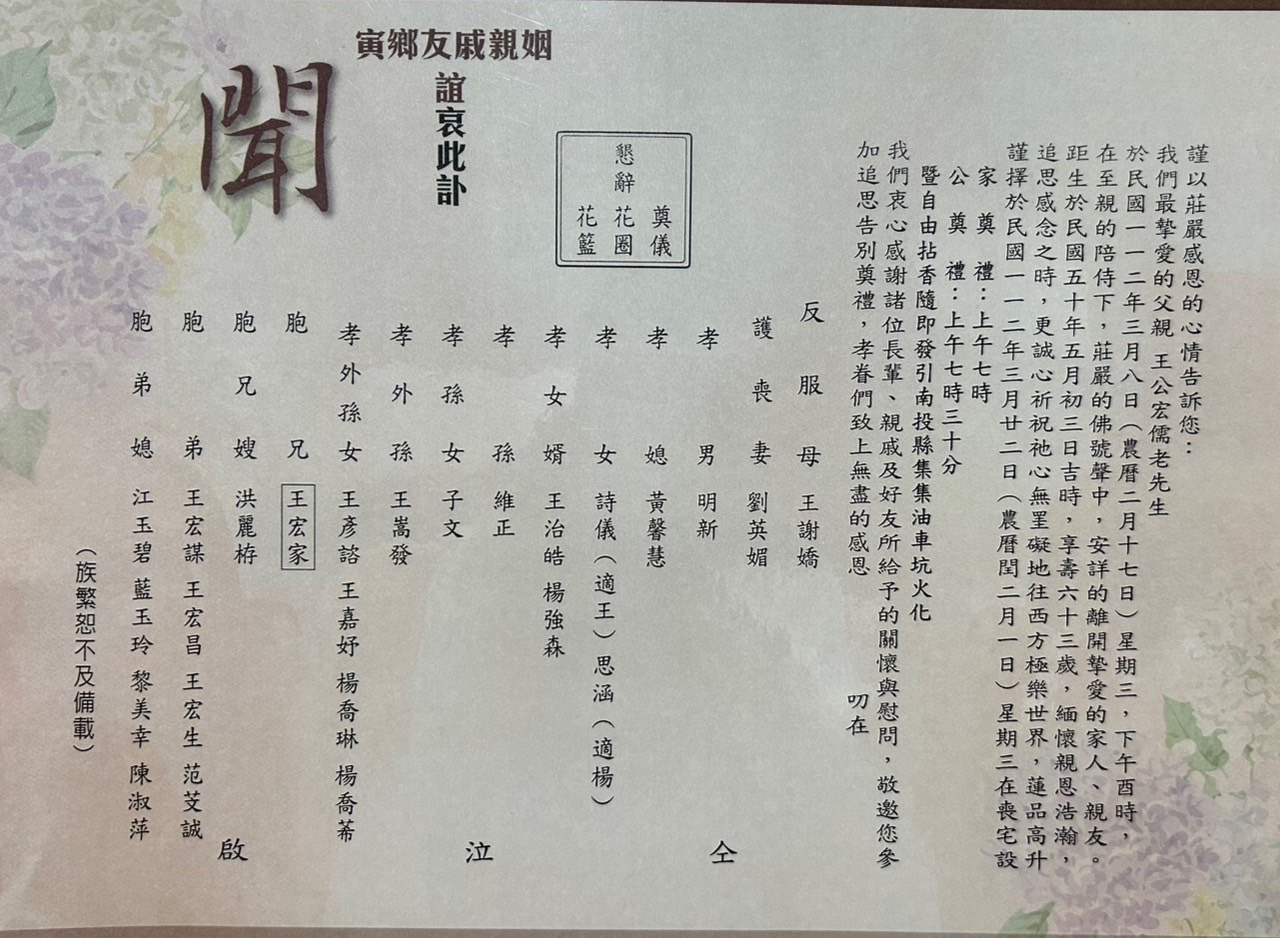 謹以莊嚴感恩的心情告訴您：
我們最摯愛的父親 王公宏儒老先生
於民國一一二年三月八日（農曆二月十七日）星期三，下午酉時，
在至親的陪侍下，莊嚴的佛號聲中，安詳的離開摯愛的家人、親友。
距生於民國五十年五月初三日吉時，享壽六十三歲，緬懷親恩浩瀚，
追思感念之時，更誠心祈祝祂心無罣礙地往西方極樂世界，蓮品高升
謹擇於民國一一二年三月廿二日（農曆閏二月一日）星期三在喪宅設
家奠禮：上午七時
公奠禮：上午七時三十分
暨自由拈香隨即發引南投縣集集油車坑火化
我們衷心感謝諸位長輩、親戚及好友所給予的關懷與慰問，敬邀您參
加追思告別奠禮，孝眷們致上無盡的感恩 叨在
反服母 王謝嬌
護喪妻 劉英媚
孝男 明新
孝媳 黃馨慧
孝女 詩儀（適王）思涵（適楊）
孝女婿 王治皓 楊強森
孝孫 維正
孝孫女 子文
孝外孫 王嵩發
孝外孫女 王彥諮 王嘉妤 楊喬琳 楊喬莃
胞兄 王宏家
胞兄嫂 洪麗栫
胞弟 王宏謀 王宏昌 王宏生 范芠誠
胞弟媳 江玉碧 藍玉玲 黎美幸 陳淑萍
仝泣啟
（族繁恕不及備載）
懇辭
奠儀
花圈
花籃
寅鄉友戚親姻
誼哀此訃
聞